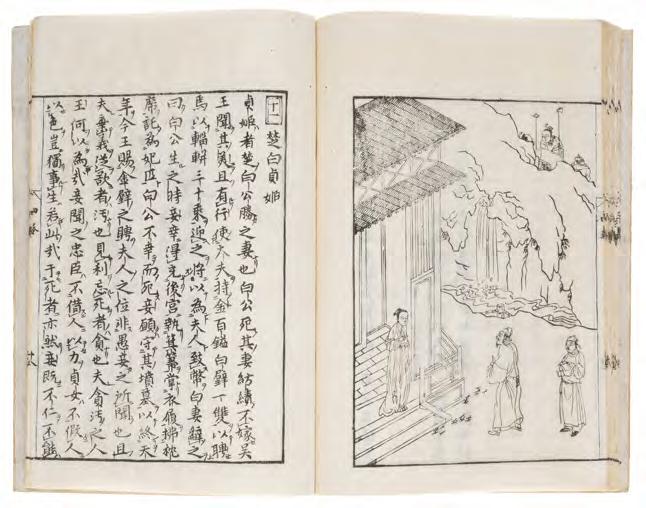 十一 楚白貞姬
貞姬者楚白公勝之妻也白公死其妻紡績不嫁吳
王聞其美且有行使大夫持金百鎰白璧一雙以聘
馬以輜軿三十乘迎之將以為夫人致幣白妻辭之
曰白公生之時妾幸得充後宮執箕箒掌衣履拂枕
席託為妃匹白公不幸而死妾願守其墳墓以終天
年今王賜金璧之聘夫人之位非愚妾之所聞也且
夫棄義從欲者汚也見利忘死者貪也夫貪汚之人
王何以為哉妾聞之忠臣不借人以力貞女不假人
以色豈獨事生若此哉于死者亦然妾既不仁不能